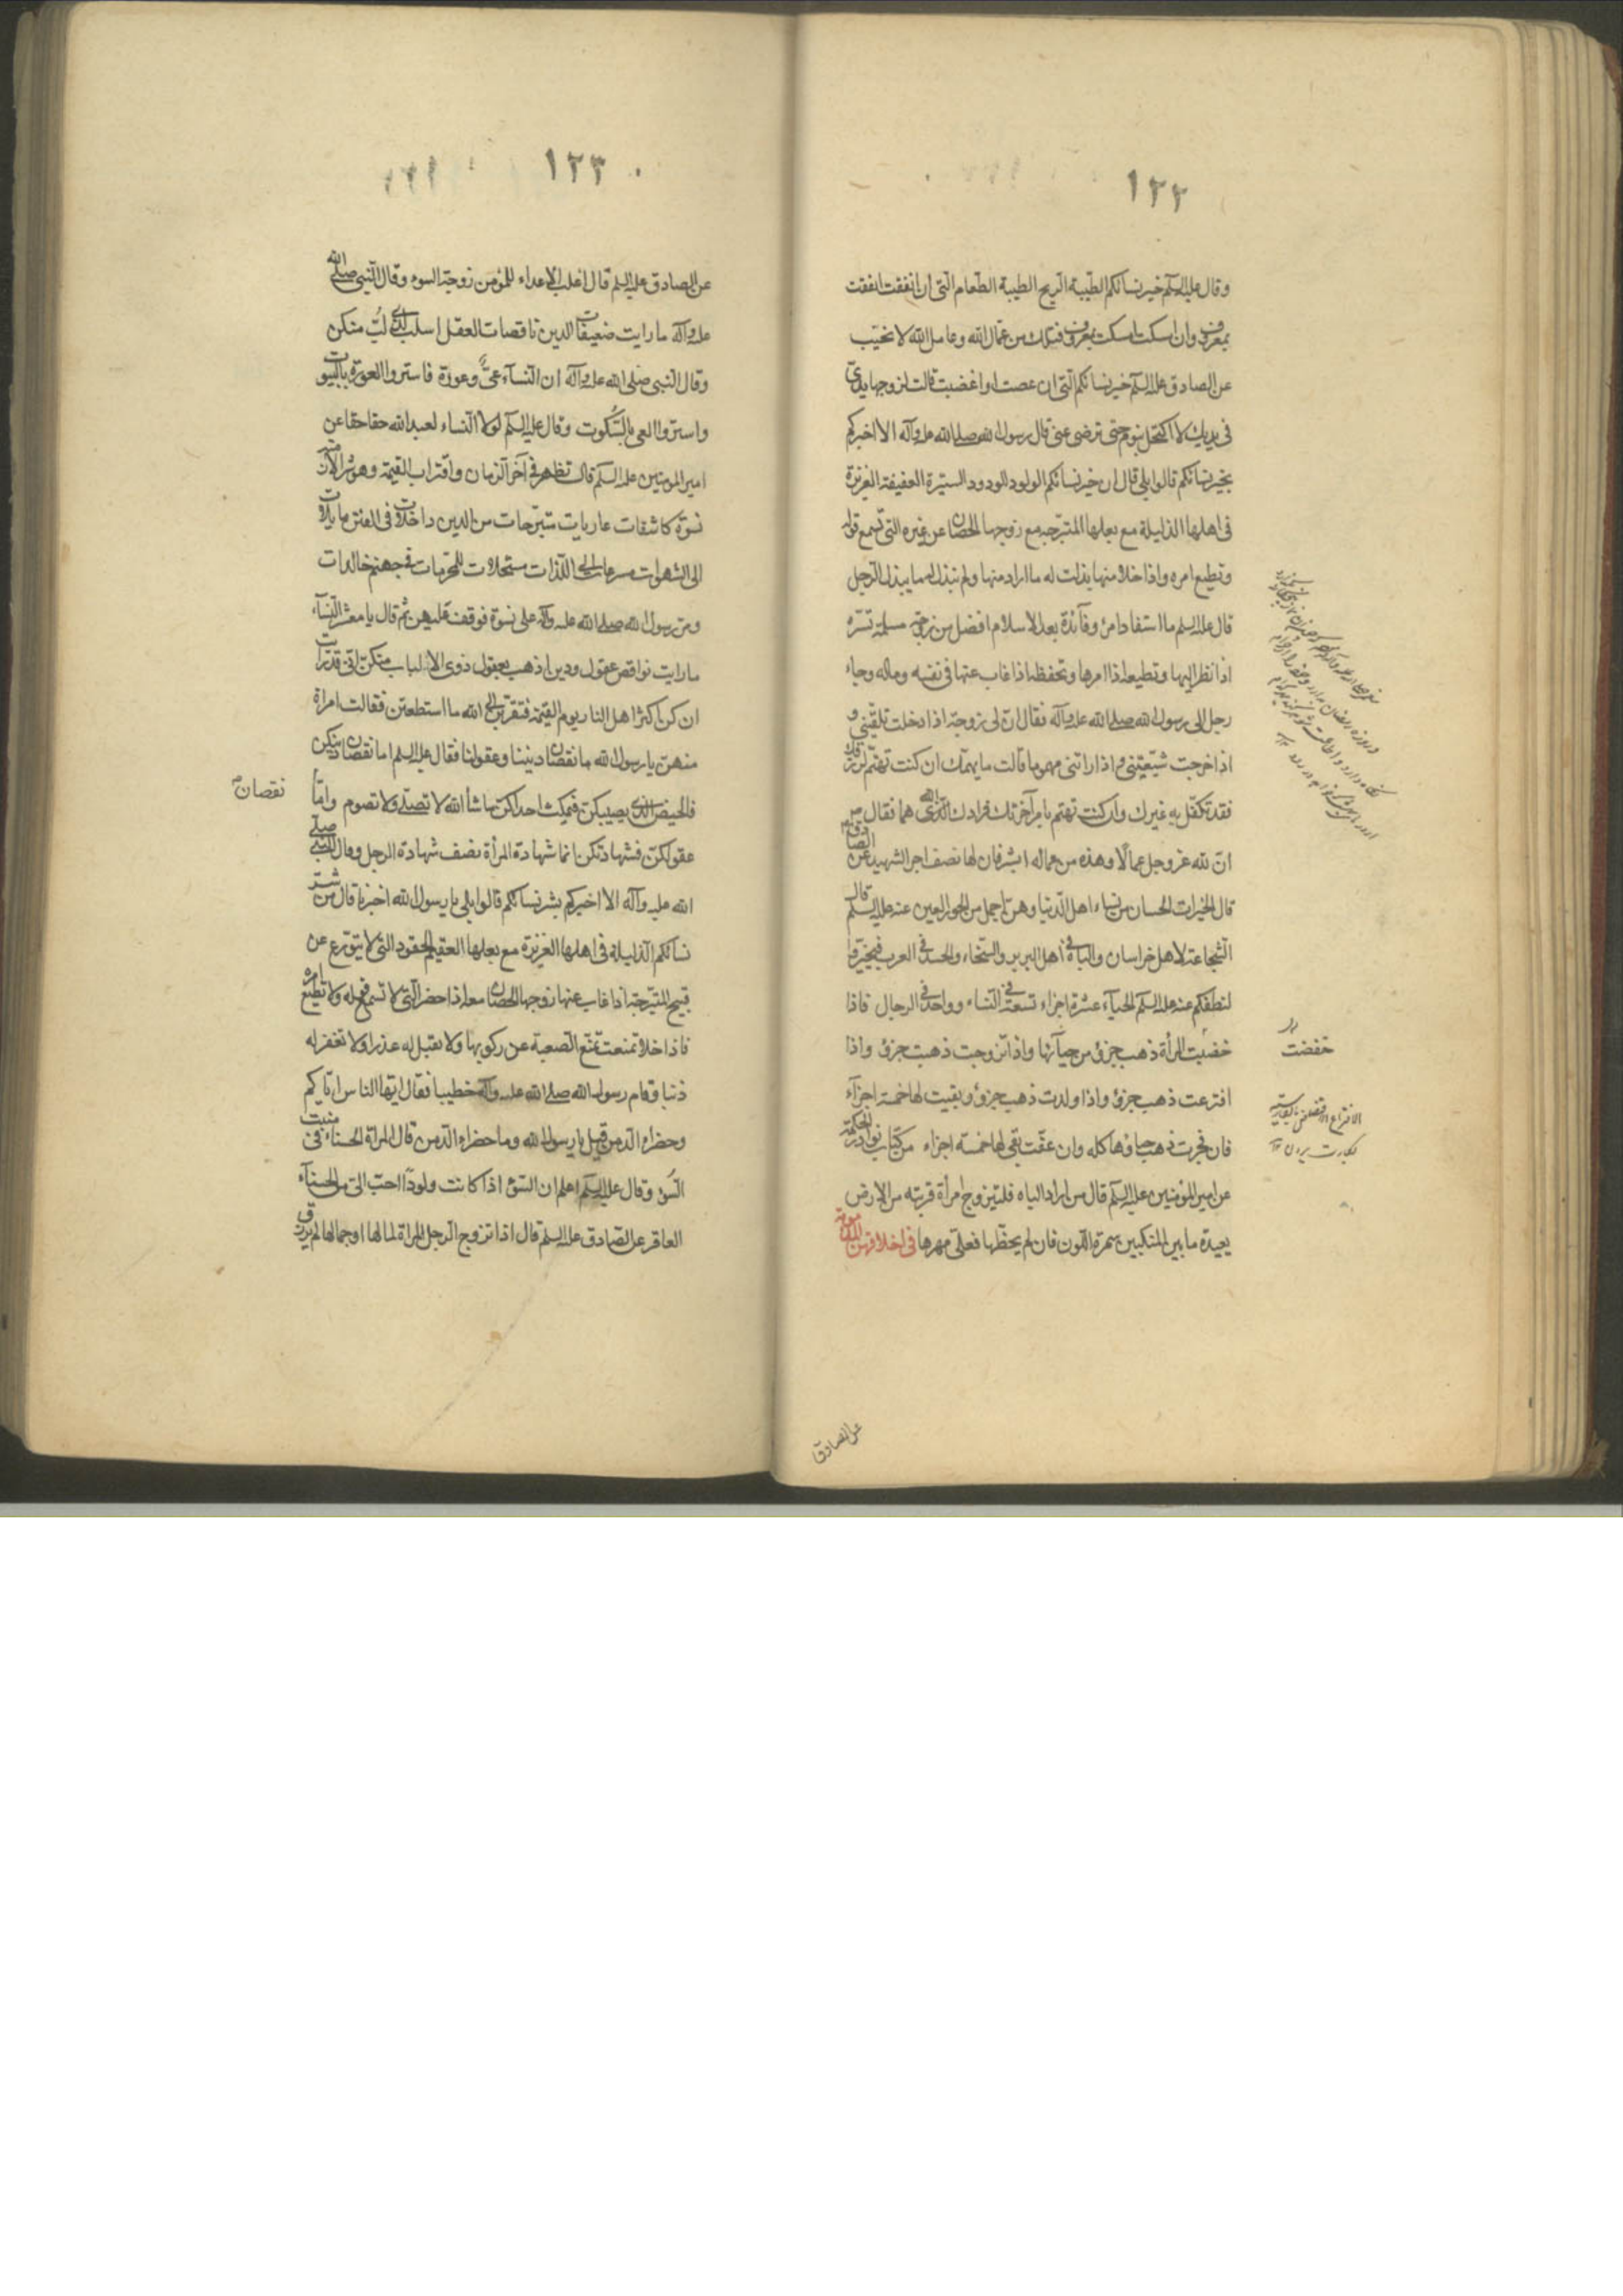 ١٢٢
وقال عليه السلم خير نسائكم الطيبة الريح الطيبة الطعام التي ان انفقت انفقت
بمعروف وان امسكت امسكت بمعروف فتلك من عمال الله وعامل الله لا يخيب
عن الصادق عليه السلم خير نسائكم التي ان غضبت او اغضبت قالت لزوجها يدى
فى يديك لا اكتحل بنوم حتى ترضى عنى قال رسول الله صلى الله عليه وآله الا اخبركم
بخير نسائكم قالوا بلى قال ان خير نسائكم الولود الودود الستيرة العفيفة العزيزة
فى اهلها الذليلة مع بعلها المتبرجة مع زوجها الحصان عن غيره التي تسمع قوله
وتطيع امره واذا خلا منها بذلت له ما اراد منها ولم تبذل له ما يبذل الرجل
قال عليه السلم ما استفاد امرؤ فائدة بعد الاسلام افضل من زوجة مسلمة تسره
اذا نظر اليها وتطيعه اذا امرها وتحفظه اذا غاب عنها فى نفسه وماله وجاء
رجل الى رسول الله صلى الله عليه وآله فقال ان لى زوجة اذا دخلت تلقتنى و
اذا خرجت شيعتنى واذا راتنى مهموما قالت ما يهمك ان كنت تهتم لرزقك
فقد تكفل به غيرك وان كنت تهتم بامر آخرتك فزادك الله هما فقال ص
ان لله عز وجل عمالا وهذه من عماله ابشر فان لها نصف اجر الشهيد عن الصادق
قال الخيرات الحسان من نساء اهل الدنيا وهن اجمل من الحور العين عنه عليه السلم قال
الشجاعة لاهل خراسان والباة فى اهل البربر والسخاء والحسد فى العرب فتخيروا
لنطفكم عنه عليه السلم الحياء عشرة اجزاء تسعة فى النساء وواحد فى الرجال فاذا
خفضت المرأة ذهب جزؤ من حيائها واذا تزوجت ذهب جزؤ واذا
افترعت ذهب جزؤ واذا ولدت ذهب جزؤ وبقيت لها خمسة اجزاء
فان فجرت ذهب حياؤها كله وان عفت بقى لها خمسة اجزاء من كتاب نوادر الحكمة
عن امير المؤمنين عليه السلم قال من اراد الباه فليتزوج امرأة قريبة من الارض
بعيدة ما بين المنكبين سمرة اللون فان لم يحظها فعلى مهرها فى اخلاقهن المذمومة
خفضت
عن الصادق
١٢٣
عن الصادق عليه السلم قال اغلب الاعداء للمؤمن زوجة السوء وقال النبى صلى الله
عليه وآله ما رايت ضعيفات الدين ناقصات العقل اسلب لذى لب منكن
وقال النبى صلى الله عليه وآله ان النساء عى وعورة فاستروا العورة بالبيوت
واستروا العى بالسكوت وقال عليه السلم لولا النساء لعبد الله حقا حقا عن
امير المؤمنين عليه السلم قال تظهر فى آخر الزمان واقتراب القيمة وهو شر الازمنة
نسوة كاشفات عاريات متبرجات من الدين داخلات فى الفتن مايلات
الى الشهوات مسرعات الى اللذات مستحلات للمحرمات فى جهنم خالدات
ومر رسول الله صلى الله عليه وآله على نسوة فوقف عليهن ثم قال يا معشر النساء
ما رايت نواقص عقول ودين اذهب بعقول ذوى الالباب منكن انى قد رايت
ان كن اكثر اهل النار يوم القيمة فتقربن الى الله ما استطعتن فقالت امراة
منهن يا رسول الله ما نقصان ديننا وعقولنا فقال عليه السلم اما نقصان دينكن
فالحيض الذى يصيبكن فتمكث احداكن ما شاء الله لا تصلى ولا تصوم واما
نقصان
عقولكن فشهادتكن انما شهادة المرأة نصف شهادة الرجل وقال النبى صلى
الله عليه وآله الا اخبركم بشر نسائكم قالوا بلى يا رسول الله اخبرنا قال من شر
نسائكم الذليلة فى اهلها العزيزة مع بعلها العقيم الحقود التى لا تتورع عن
قبيح المتبرجة اذا غاب عنها زوجها الحصان معه اذا حضر التى لا تسمع قوله ولا تطيع امره
فاذا خلا تمنعت تمنع الصعبة عن ركوبها ولا تقبل له عذرا ولا تغفر له
ذنبا وقام رسول الله صلى الله عليه وآله خطيبا فقال ايها الناس اياكم
وخضراء الدمن قيل يا رسول الله وما خضراء الدمن قال المرأة الحسناء فى منبت
السوء وقال عليه السلم اعلم ان السوء اذا كانت ولودا احب الى من الحسناء
العاقر عن الصادق عليه السلم قال اذا تزوج الرجل المرأة لمالها او جمالها لم يرزق